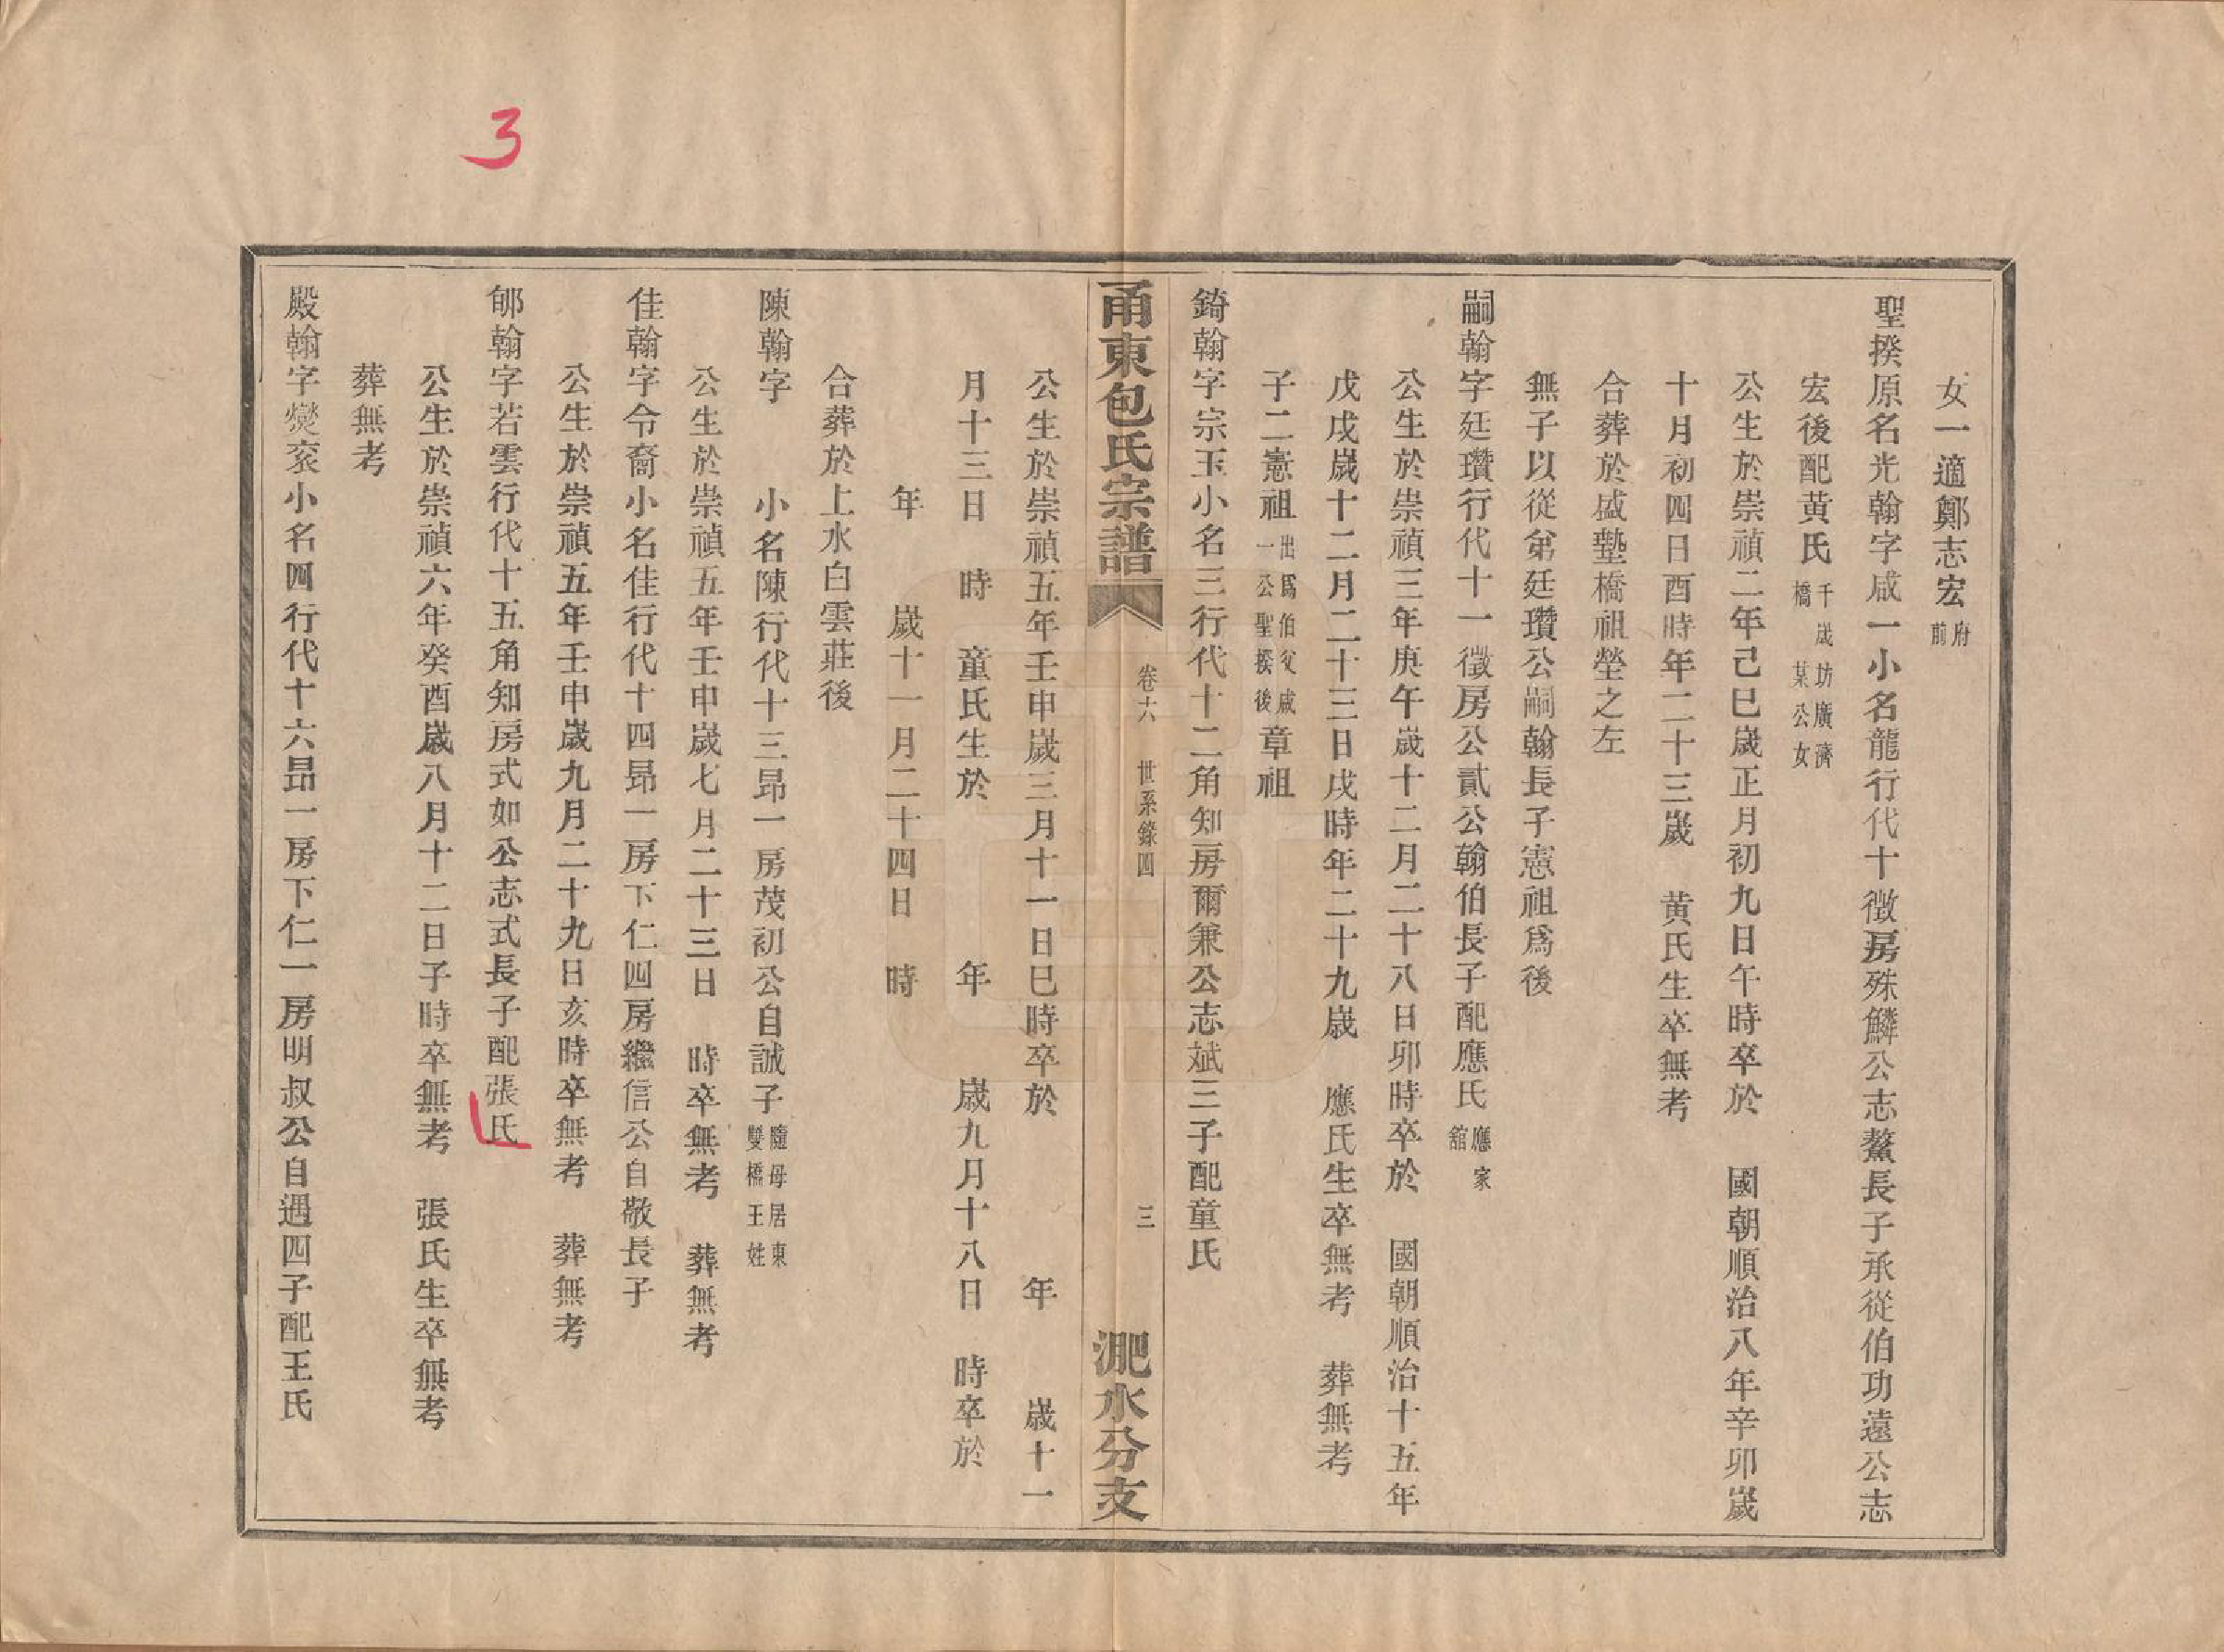 3
女一適鄭志宏府前
聖揆原名光翰字咸一小名龍行代十徵房殊鱗公志鰲長子承從伯功遠公志
宏後配黃氏千歲坊廣濟橋某公女
公生於崇禎二年己巳歲正月初九日午時卒於　國朝順治八年辛卯歲
十月初四日酉時年二十三歲　黃氏生卒無考
合葬於盛墊橋祖塋之左
無子以從弟廷瓚公嗣翰長子憲祖爲後
嗣翰字廷瓚行代十一徵房公貳公翰伯長子配應氏應家舘
公生於崇禎三年庚午歲十二月二十八日卯時卒於　國朝順治十五年
戊戌歲十二月二十三日戌時年二十九歲　應氏生卒無考　葬無考
子二憲祖出爲伯父咸一公聖揆後章祖
錡翰字宗玉小名三行代十二角知房爾兼公志斌三子配童氏
甬東包氏宗譜　卷六　世系錄四　三　淝水分支
公生於崇禎五年壬申歲三月十一日巳時卒於　年　歲十一
月十三日　時　童氏生於　年　歲九月十八日　時卒於
年　歲十一月二十四日　時
合葬於上水白雲莊後
陳翰字　小名陳行代十三昂一房茂初公自誠子隨母居東雙橋王姓
公生於崇禎五年壬申歲七月二十三日　時卒無考　葬無考
佳翰字令裔小名佳行代十四昂一房下仁四房繼信公自敬長子
公生於崇禎五年壬申歲九月二十九日亥時卒無考　葬無考
郇翰字若雲行代十五角知房式如公志式長子配張氏
公生於崇禎六年癸酉歲八月十二日子時卒無考　張氏生卒無考
葬無考
殿翰字爕袞小名四行代十六昂一房下仁一房明叔公自遇四子配王氏